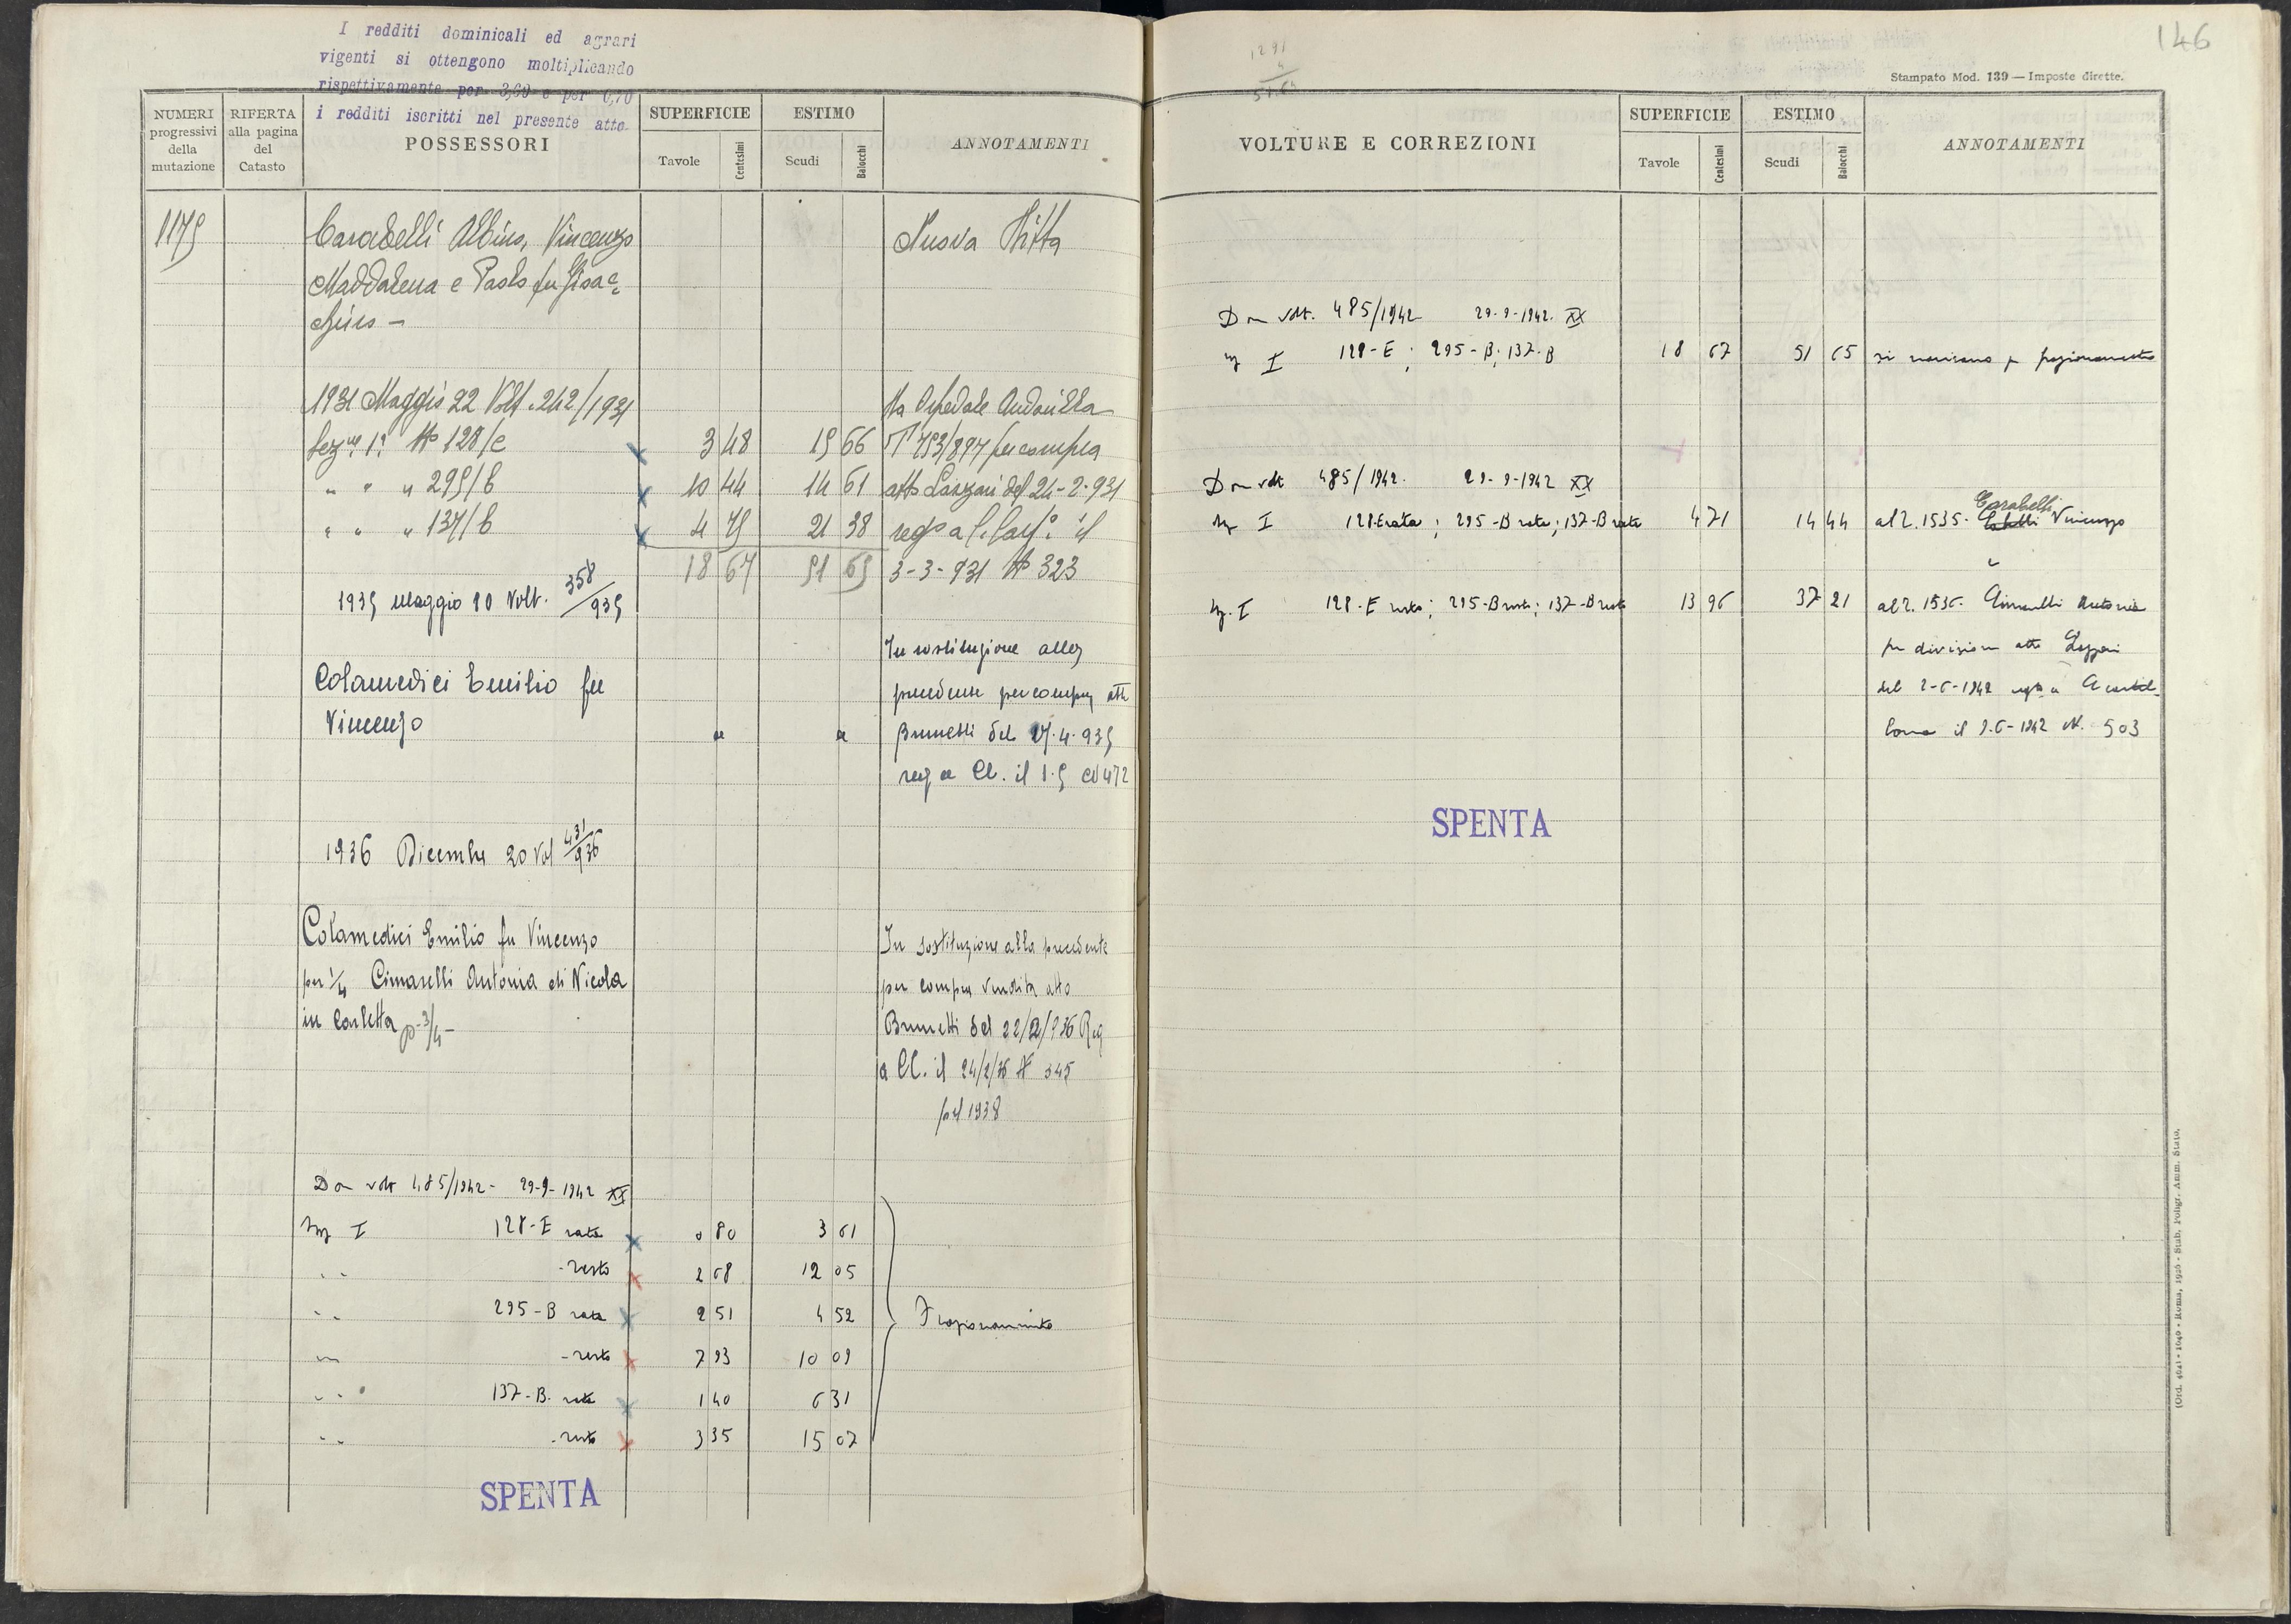 I redditi dominicali ed agrari
vigenti si ottengono moltiplicando
rispettivamente per 3,60 e per 6,70
i redditi iscritti nel presente atto.
NUMERI progressivi della mutazione
RIFERTA alla pagina del Catasto
POSSESSORI
SUPERFICIE
Tavole
Centesimi
ESTIMO
Scudi
Baiocchi
ANNOTAMENTI
1175
Carabelli Albino, Vincenzo
Nuova Ditta
Maddalena e Paolo fu Gioac
chino -
1931 Maggio 22 Volt. 242/1931
Da Ospedale
Sez.ne 1a No 128/e 3 48 15 66 T 753/897 per compra
" " " 295/b 10 44 14 61 atto Lanzani del 24-2-931
" " " 137/b 4 75 21 38 reg° a il
18 67 51 65 3-3-931 No 323
1935 Maggio 20 Volt. 358/935
In sostituzione alla
Colamedici Emilio fu
precedente per compra atto
Vincenzo
" "
Brunetti del 17.4.935
reg a Cl. il 1.5 N 472
1936 Dicembre 20 Vol 431/936
Colamedici Emilio fu Vincenzo
In sostituzione alla precedente
per 1/4 Cimarelli Antonia di Nicola
per compra vendita atto
in Carletta p 3/4 -
Brunetti del 22/2/936 Reg
a Cl. il 24/2/36 N 345
pel 1938
Da volt 485/1942 - 29-9-1942 XX
Sez I 128-E rata 0 80 3 61
" " - resto 2 68 12 05
" " 295-B rata 2 51 4 52 Frazionamento
" " - resto 7 93 10 09
" " 137-B. rata 1 40 6 31
" " - resto 3 35 15 07
SPENTA
146
Stampato Mod. 139 — Imposte dirette.
VOLTURE E CORREZIONI
SUPERFICIE
Tavole
Centesimi
ESTIMO
Scudi
Baiocchi
ANNOTAMENTI
Da volt. 485/1942 29-9-1942. XX
Sez I 128-E; 295-B; 137-B 18 67 51 65 si scaricano p frazionamento
Da volt 485/1942. 29-9-1942 XX
Carabelli
Sez I 128-E rata; 295-B rata; 137-B rata 4 71 14 44 al 2. 1535. Vincenzo
Sez. I 128-E resto; 295-B resto; 137-B resto 13 96 37 21 al 2. 1536. Cimarelli Antonia
per divisione atto
del 2-6-1942 reg a
il 9-6-1942 N. 503
SPENTA